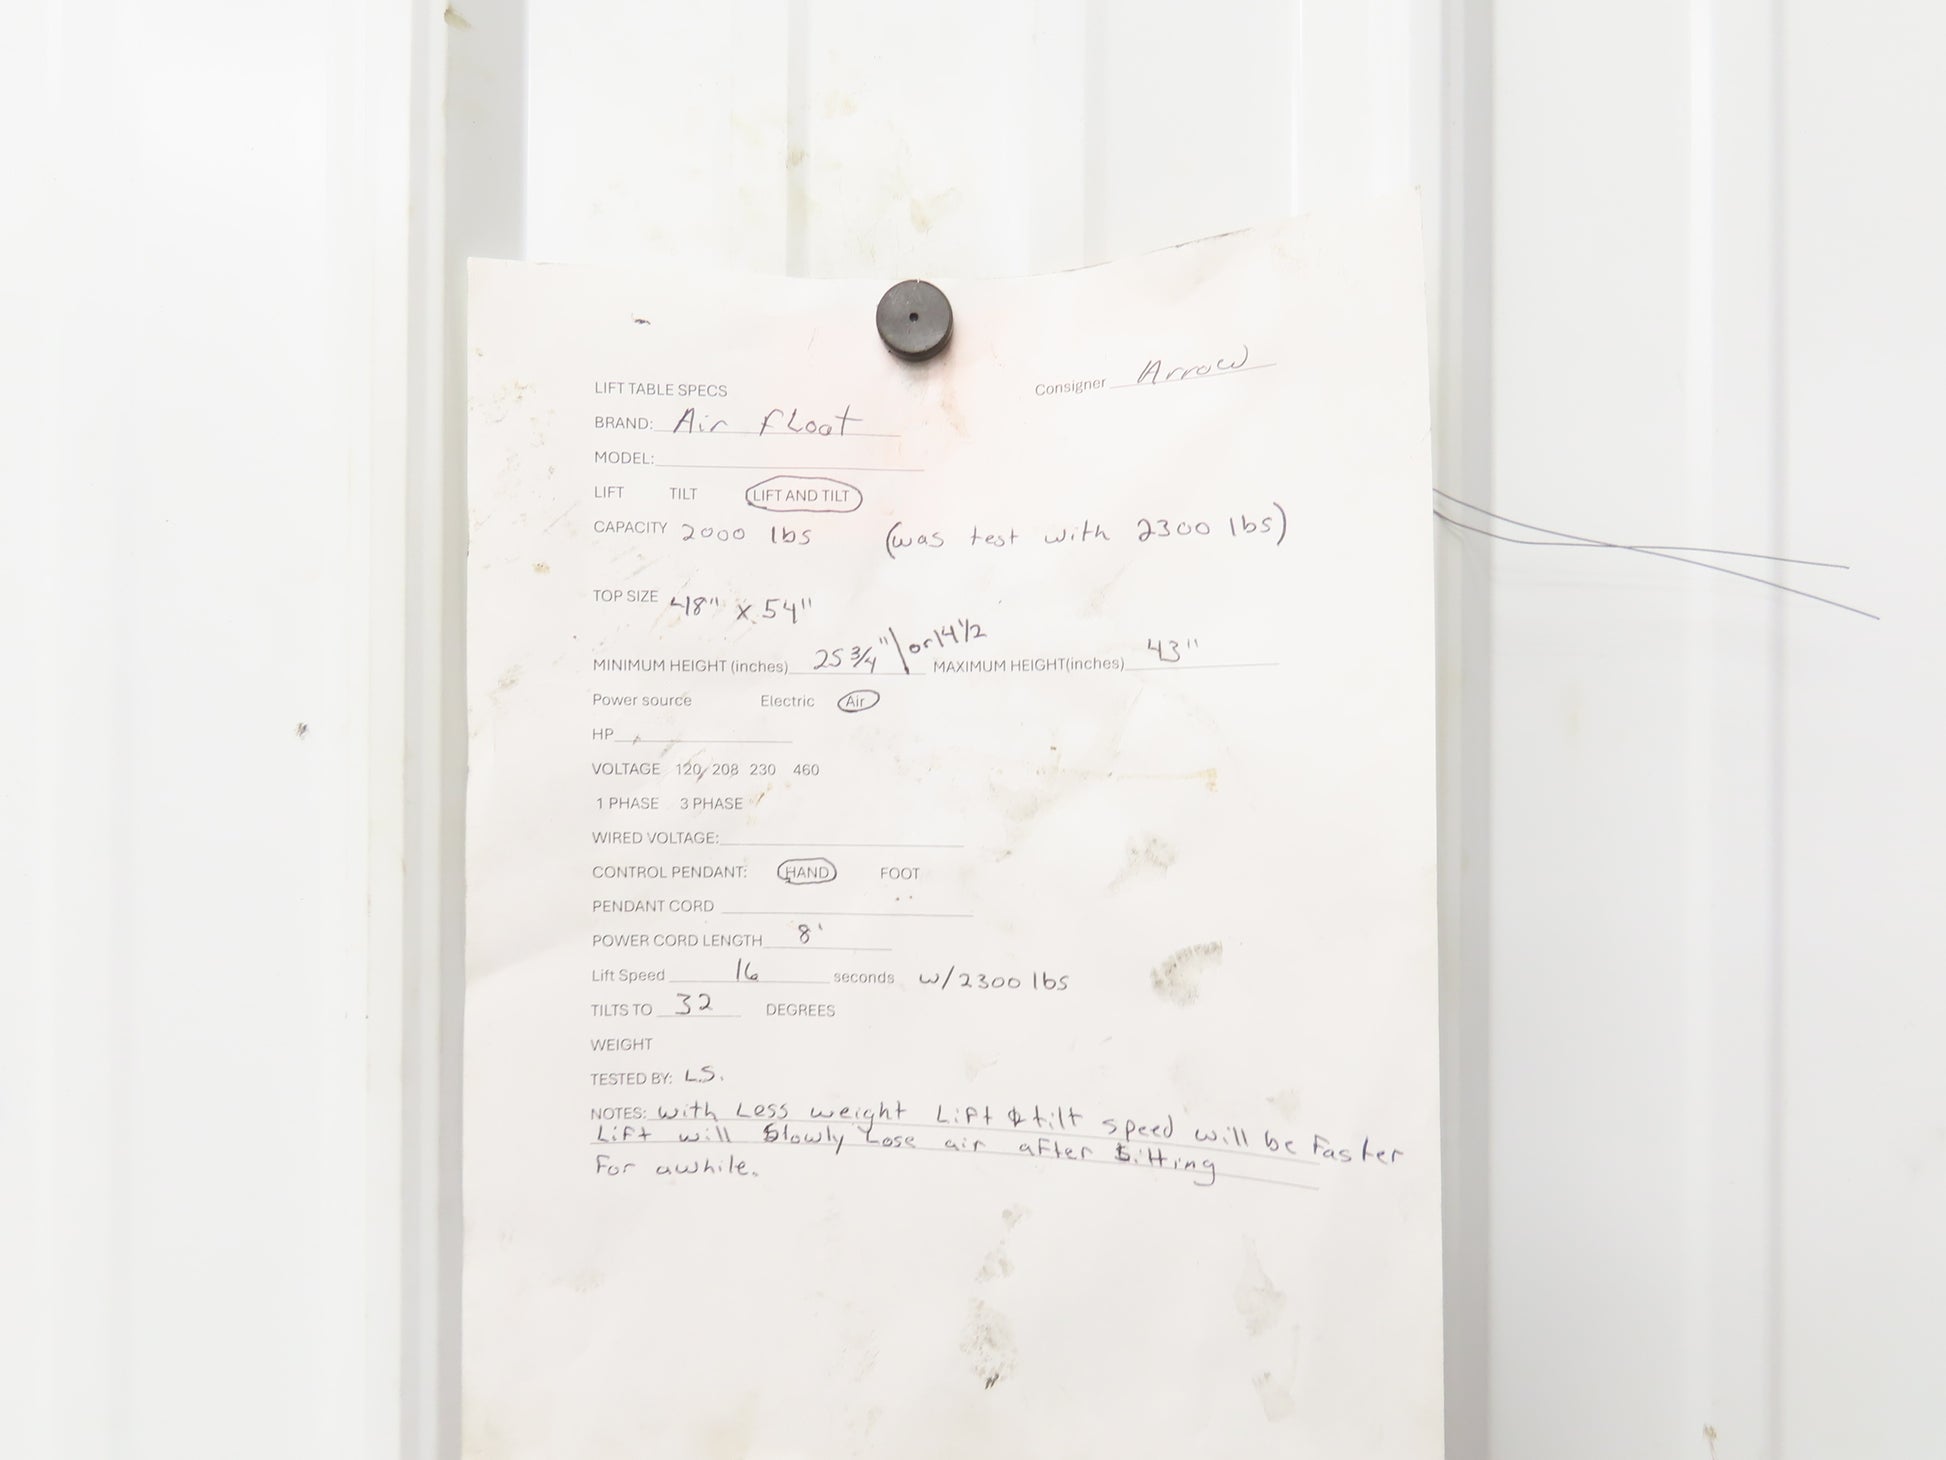 LIFT TABLE SPECS Consigner Arrow
BRAND: Air Float
MODEL:
LIFT TILT LIFT AND TILT
CAPACITY 2000 lbs (was test with 2300 lbs)
TOP SIZE 48" x 54"
MINIMUM HEIGHT (inches) 25 3/4" \ or 14 1/2 MAXIMUM HEIGHT(inches) 43"
Power source Electric Air
HP
VOLTAGE 120 208 230 460
1 PHASE 3 PHASE
WIRED VOLTAGE:
CONTROL PENDANT: HAND FOOT
PENDANT CORD
POWER CORD LENGTH 8'
Lift Speed 16 seconds w/2300 lbs
TILTS TO 32 DEGREES
WEIGHT
TESTED BY: L.S.
NOTES: with Less weight Lift & tilt speed will be Faster
Lift will Slowly Lose air after Sitting
For awhile.